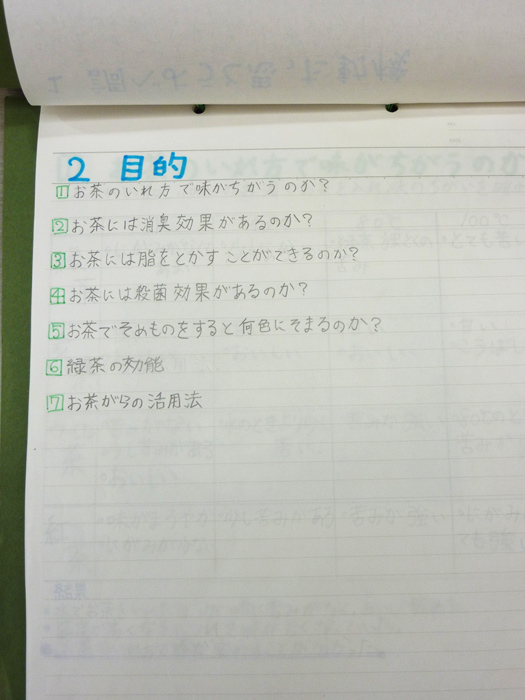 2 目的
1 お茶のいれ方で味がちがうのか?
2 お茶には消臭効果があるのか?
3 お茶には脂をとかすことができるのか?
4 お茶には殺菌効果があるのか?
5 お茶でそめものをすると何色にそまるのか?
6 緑茶の効能
7 お茶がらの活用法